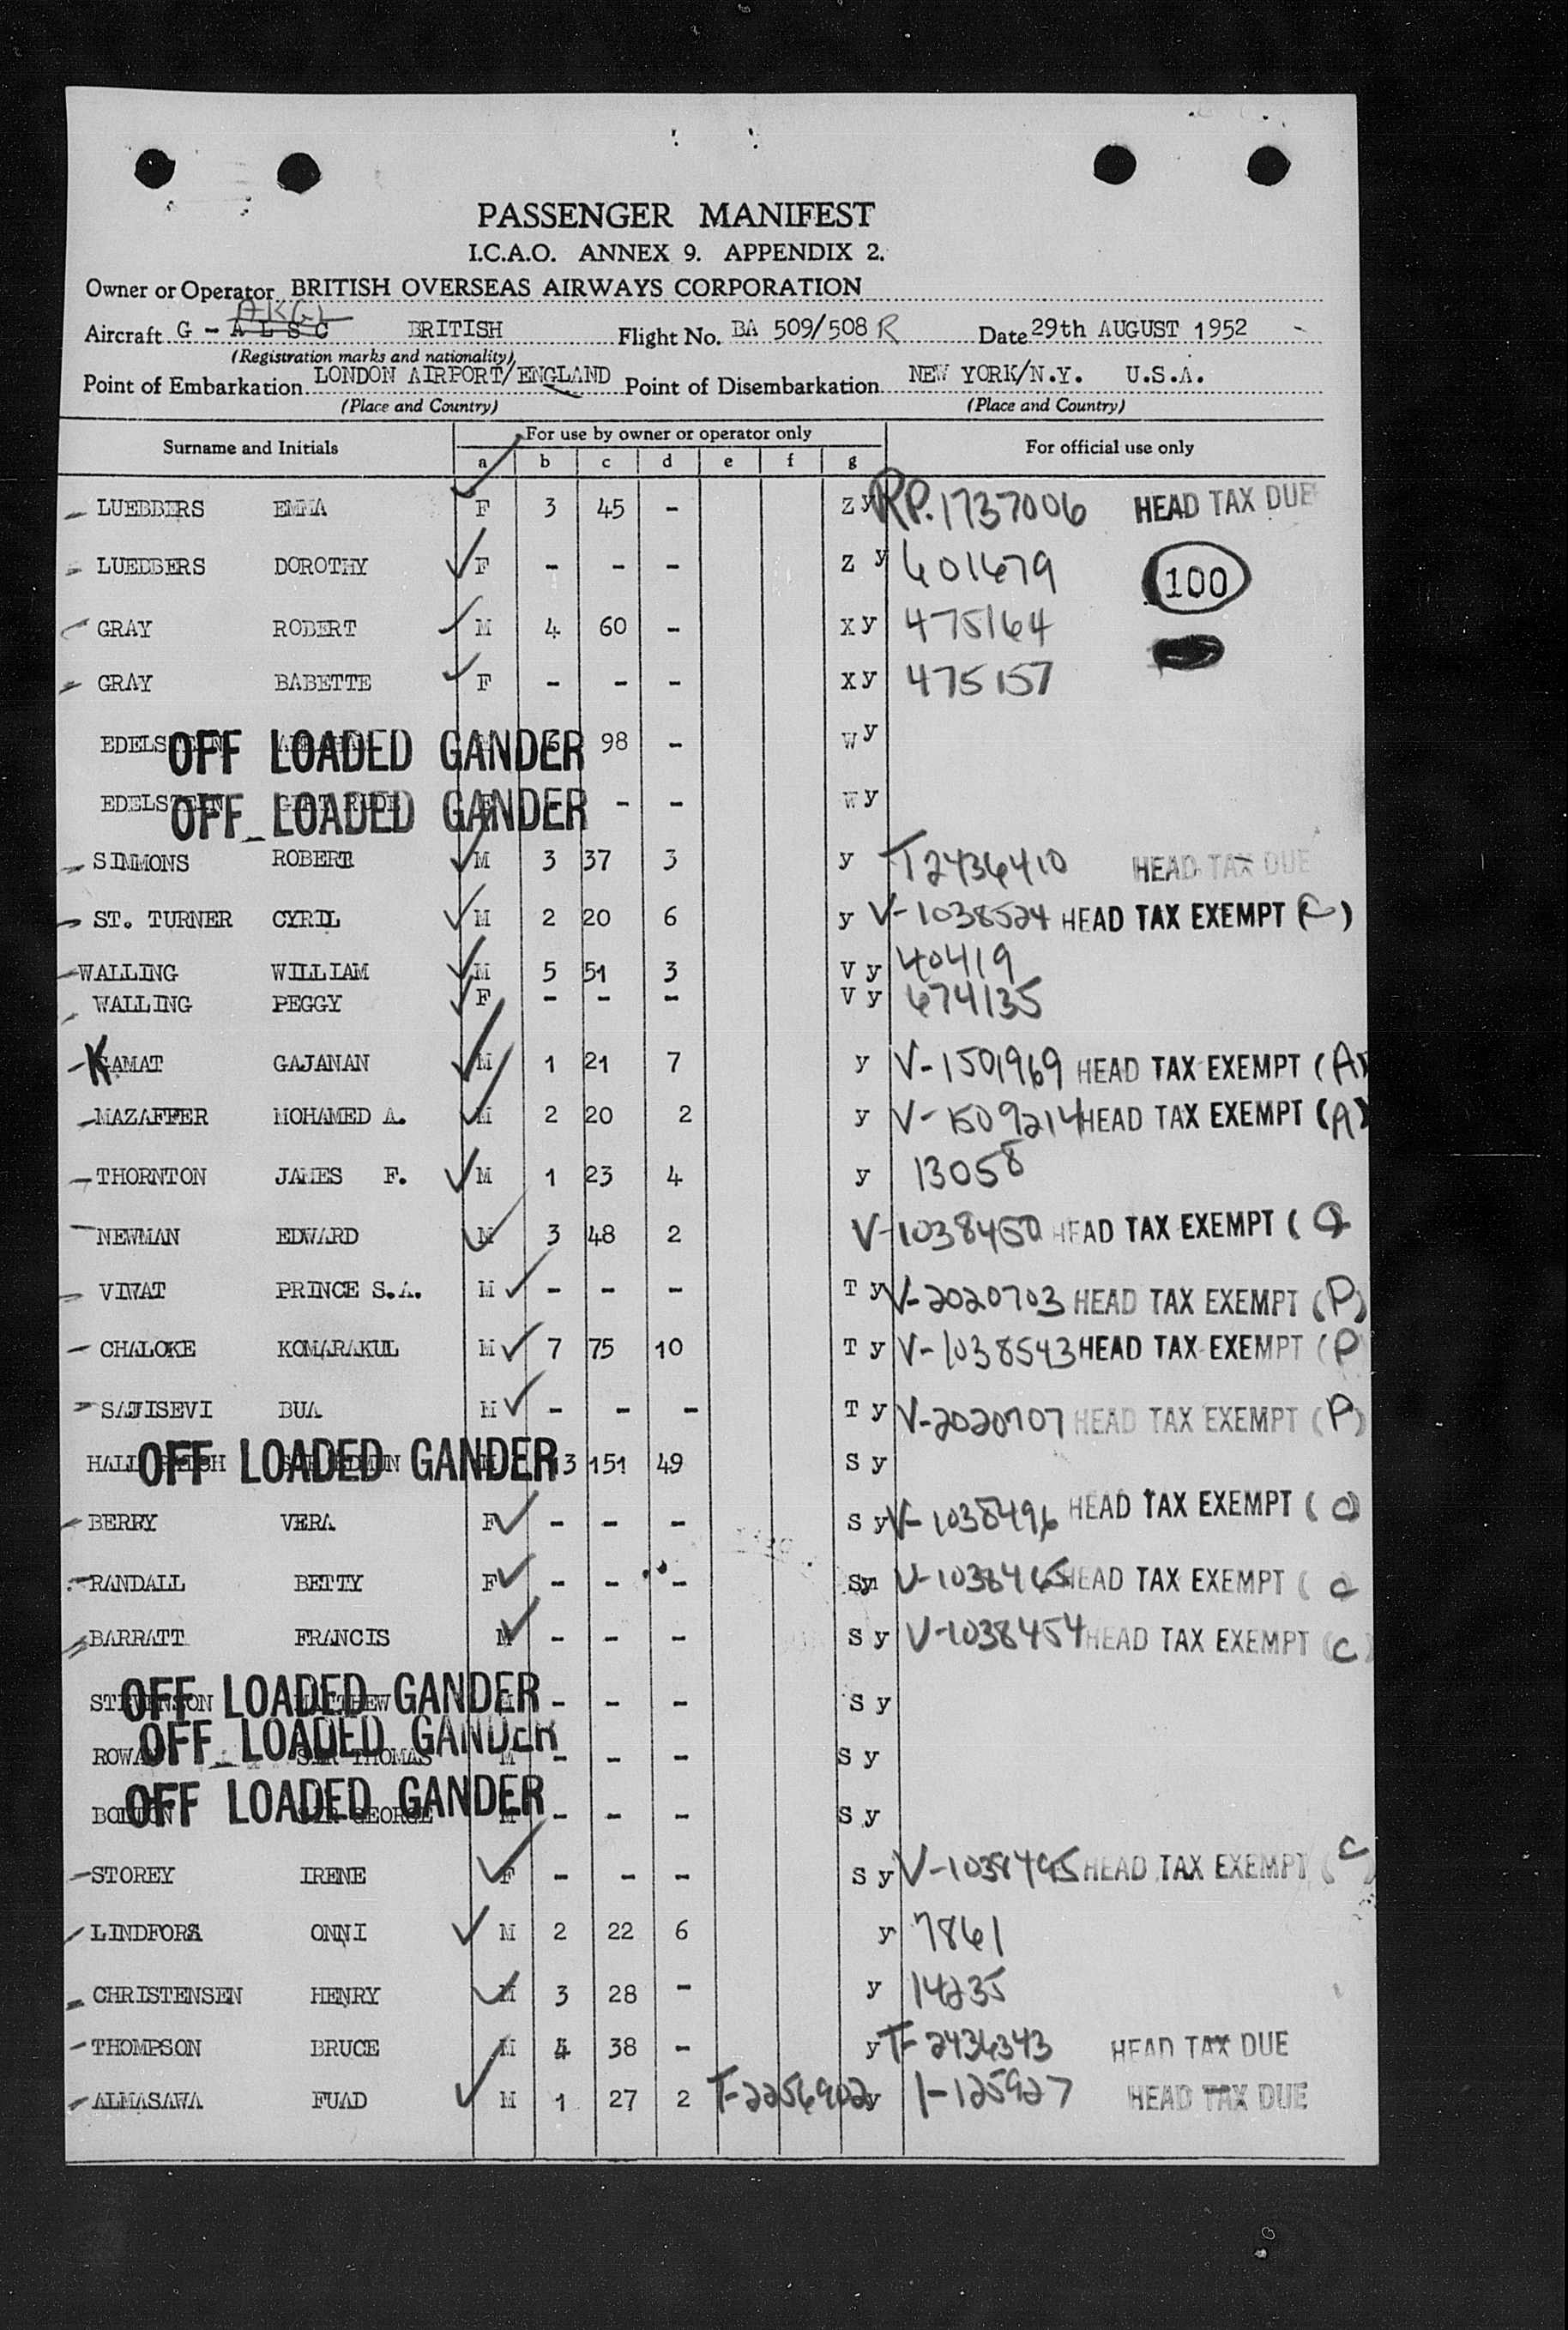 PASSENGER MANIFEST
I.C.A.O. ANNEX 9. APPENDIX 2.
Owner or Operator BRITISH OVERSEAS AIRWAYS CORPORATION
Aircraft G - A L S C BRITISH Flight No. BA 509/508 R Date 29th AUGUST 1952
(Registration marks and nationality)
Point of Embarkation LONDON AIRPORT/ENGLAND Point of Disembarkation NEW YORK/N.Y. U.S.A.
(Place and Country) (Place and Country)
Surname and Initials For use by owner or operator only For official use only
a b c d e f g
LUEBBERS EMMA F 3 45 - Z y RP.1737006 HEAD TAX DUE
LUEBBERS DOROTHY F - - - Z y 601679 100
GRAY ROBERT M 4 60 - X y 475164
GRAY BABETTE F - - - X y 475157
EDELSTEIN OFF LOADED GANDER 98 - W y
EDELSTEIN OFF LOADED GANDER - - W y
SIMMONS ROBERT M 3 37 3 y T2436410 HEAD TAX DUE
ST. TURNER CYRIL M 2 20 6 y V-1038524 HEAD TAX EXEMPT (C)
WALLING WILLIAM M 5 51 3 V y 40419
WALLING PEGGY F - - - V y 674135
KAMAT GAJANAN M 1 21 7 y V-1501969 HEAD TAX EXEMPT (A)
MAZAFFER MOHAMED A. M 2 20 2 y V-1509214 HEAD TAX EXEMPT (A)
THORNTON JAMES F. M 1 23 4 y 13058
NEWMAN EDWARD M 3 48 2 V-1038450 HEAD TAX EXEMPT (
VIWAT PRINCE S.A. M - - - T y V-2020703 HEAD TAX EXEMPT (P)
CHALOKE KOMARAKUL M 7 75 10 T y V-1038543 HEAD TAX EXEMPT (P
SAJISEVI BUA M - - - T y V-2020707 HEAD TAX EXEMPT (P)
HALL OFF LOADED GANDER 13 151 49 S y
BERRY VERA F - - - S y V-1038496 HEAD TAX EXEMPT ( C)
RANDALL BETTY F - - - Sy V-1038465 HEAD TAX EXEMPT ( C
BARRATT FRANCIS M - - - S y V-1038454 HEAD TAX EXEMPT (C)
STEVENSON MATTHEW OFF LOADED GANDER - - - S y
ROWAN SIR THOMAS M OFF LOADED GANDER - - - S y
BOLTON SIR GEORGE M OFF LOADED GANDER - - - S y
STOREY IRENE F - - - S y V-1038495 HEAD TAX EXEMPT (C)
LINDFORS ONNI M 2 22 6 y 7861
CHRISTENSEN HENRY M 3 28 - y 14235
THOMPSON BRUCE M 4 38 - y T-2436343 HEAD TAX DUE
ALMASAWA FUAD M 1 27 2 T-2256902 y 1-125927 HEAD TAX DUE